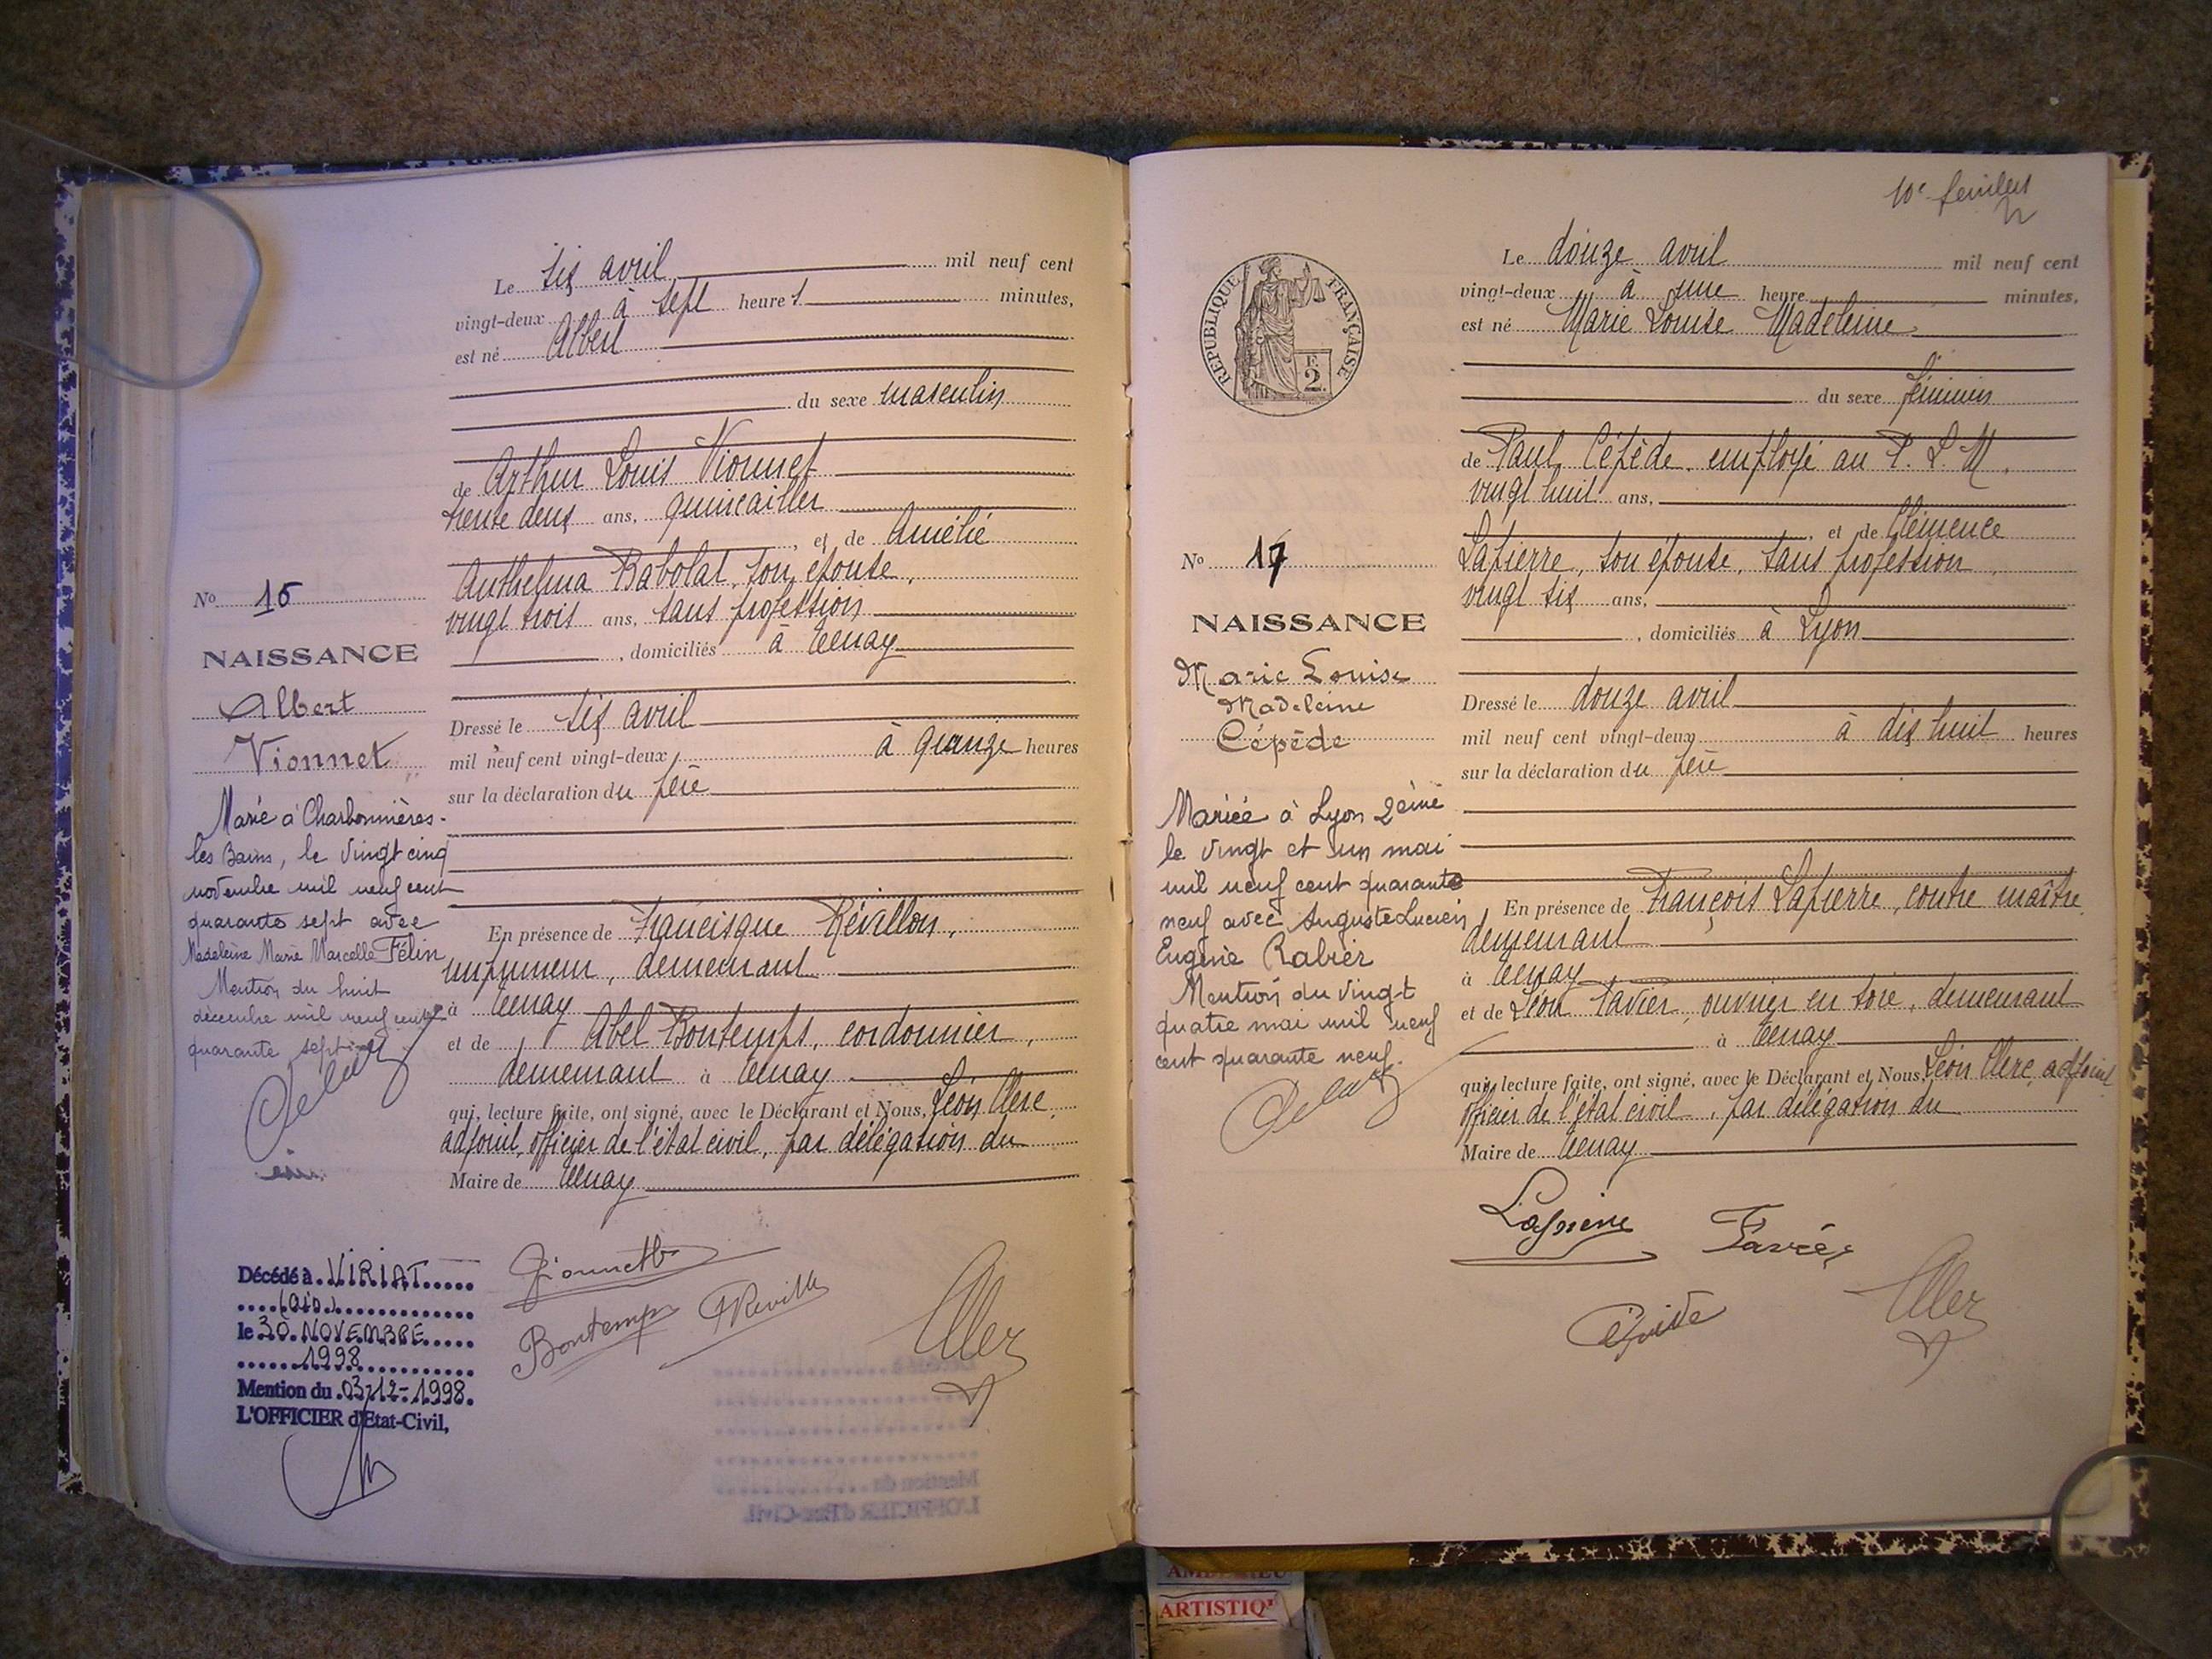 Le six avril mil neuf cent
vingt-deux à sept heures minutes,
est né Albert
du sexe masculin
de Arthur Louis Vionnet
trente deux ans, quincailler
, et de Amélie
Anthelma Rabolat, son épouse,
vingt trois ans, sans profession
, domiciliés à Tenay
Dressé le six avril
mil neuf cent vingt-deux à quinze heures
sur la déclaration du père
En présence de Francisque Révillon,
imprimeur, demeurant
à Tenay
et de Abel Bontemps, cordonnier,
demeurant à Tenay
qui, lecture faite, ont signé, avec le Déclarant et Nous, Léon Clerc,
adjoint, officier de l'état civil, par délégation du
Maire de Tenay
No 16
NAISSANCE
Albert
Vionnet
Marié à Charbonnières-
les Bains, le vingt cinq
novembre mil neuf cent
quarante sept avec
Madeleine Marie Marcelle Félin
Mention du huit
décembre mil neuf cent
quarante sept
Décédé à VIRIAT
(Ain)
le 30 NOVEMBRE
1998
Mention du 03-12-1998.
L'OFFICIER d'Etat-Civil,
Bontemps
10e feuillet
RÉPUBLIQUE FRANÇAISE
2
Le douze avril mil neuf cent
vingt-deux à une heure minutes,
est né Marie Louise Madeleine
du sexe féminin
de Paul Cépède, employé au P. L. M.
vingt huit ans,
, et de Clémence
Lapierre, son épouse, sans profession,
vingt six ans,
, domiciliés à Lyon
Dressé le douze avril
mil neuf cent vingt-deux à dix huit heures
sur la déclaration du père
En présence de François Lapierre, contre maître,
demeurant
à Tenay
et de Léon Favier, ouvrier en soie, demeurant
à Tenay
qui, lecture faite, ont signé, avec le Déclarant et Nous, Léon Clerc, adjoint
officier de l'état civil, par délégation du
Maire de Tenay
No 17
NAISSANCE
Marie Louise
Madeleine
Cépède
Mariée à Lyon 2ème
le vingt et un mai
mil neuf cent quarante
neuf avec Auguste Lucien
Eugène Rabier
Mention du vingt
quatre mai mil neuf
cent quarante neuf.
Lapierre
Cépède
ARTISTIQ